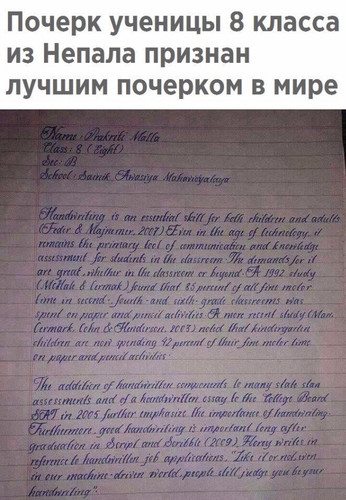 Почерк ученицы 8 класса
из Непала признан
лучшим почерком в мире
Name : Prakriti Malla
Class : 8 (Eight)
Sec : B
School : Sainik Awasiya Mahavidyalaya
Handwriting is an essential skill for both children and adults
(Feder & Majnemer, 2007) Even in the age of technology, it
remains the primary tool of communication and knowledge
assessment for students in the classroom The demands for it
are great, whether in the classroom or beyond A 1992 study
(McHale & Cermak) found that 85 percent of all fine motor
time in second-, fourth- and sixth-grade classrooms was
spent on paper and pencil activities A more recent study (Marr,
Cermark, Cohn & Henderson, 2003) noted that kindergarten
children are now spending 42 percent of their fine motor time
on paper and pencil activities
The addition of handwritten components to many state
assessments and of a handwritten essay to the College Board
SAT in 2005 further emphasize the importance of handwriting
Furthermore, good handwriting is important long after
graduation in Script and Scribble (2009), Florey writes in
reference to handwritten job applications "Like it or not, even
in our machine-driven world, people still judge you by your
handwriting."